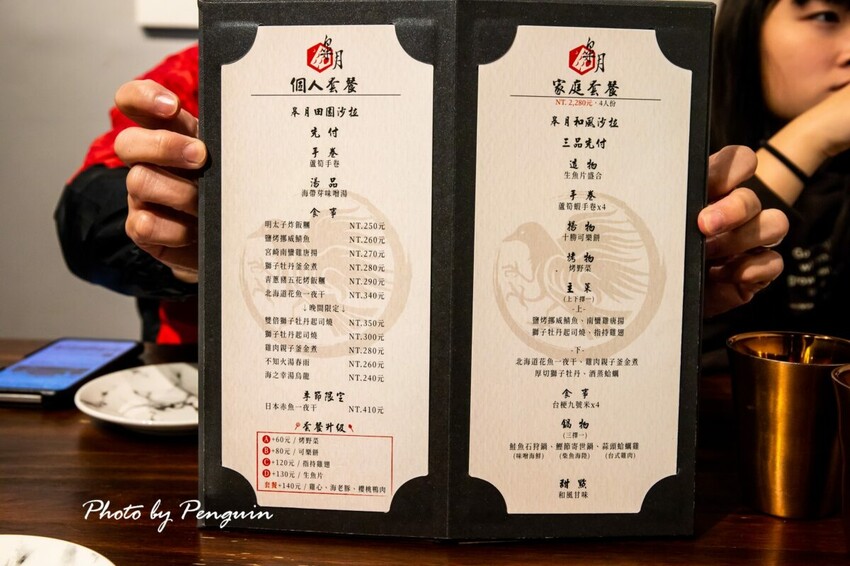 皋月
個人套餐
皋月田園沙拉
先付
手卷
蘆筍手卷
湯品
海帶芽味噌湯
食事
明太子炸飯糰 NT.250元
鹽烤挪威鯖魚 NT.260元
宮崎南蠻雞唐揚 NT.270元
獅子牡丹釜金煮 NT.280元
青蔥豬五花烤飯糰 NT.290元
北海道花魚一夜干 NT.340元
↓晚間限定↓
雙倍獅子牡丹起司燒 NT.350元
獅子牡丹起司燒 NT.300元
雞肉親子釜金煮 NT.280元
不知火湯春雨 NT.260元
海之幸湯烏龍 NT.240元
季節限定
日本赤魚一夜干 NT.410元
套餐升級
A +60元 / 烤野菜
B +80元 / 可樂餅
C +120元 / 指持雞翅
D +130元 / 生魚片
套餐+140元 / 雞心、海老豚、櫻桃鴨肉
皋月
家庭套餐
NT. 2,280元，4人份
皋月和風沙拉
三品先付
造物
生魚片盛合
手卷
蘆筍蝦手卷x4
揚物
十勝可樂餅
烤物
烤野菜
主菜
(上下擇一)
-上-
鹽烤挪威鯖魚、南蠻雞唐揚
獅子牡丹起司燒、指持雞翅
-下-
北海道花魚一夜干、雞肉親子釜金煮
厚切獅子牡丹、酒蒸蛤蠣
食事
台梗九號米x4
鍋物
(三擇一)
鮭魚石狩鍋、鰹節寄世鍋、蒜頭蛤蠣雞
(味噌海鮮) (柴魚海陸) (台式雞肉)
甜點
和風甘味
Photo by Penguin